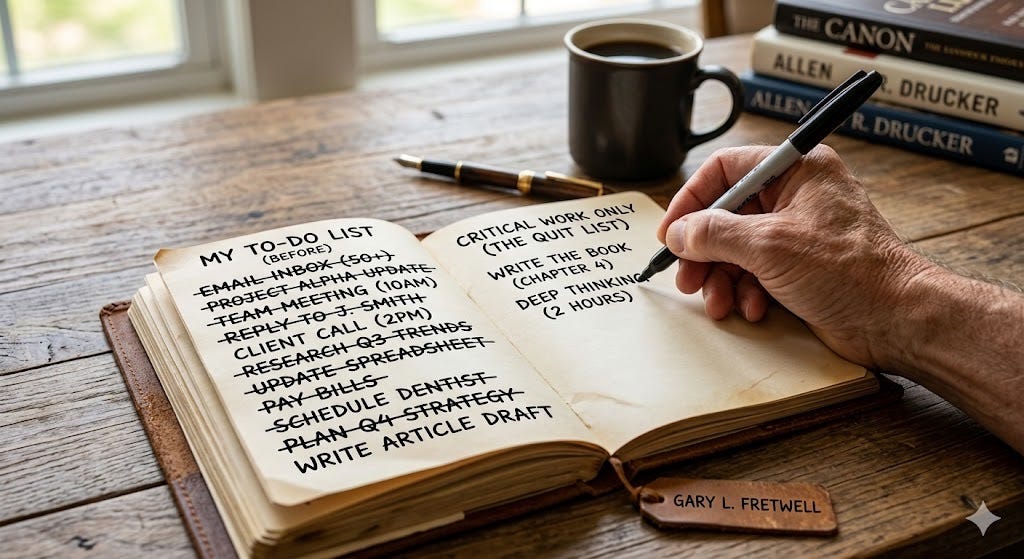 MY TO-DO LIST
(BEFORE)
EMAIL INBOX (50+)
PROJECT ALPHA UPDATE
TEAM MEETING (10AM)
REPLY TO J. SMITH
CLIENT CALL (2PM)
RESEARCH Q3 TRENDS
UPDATE SPREADSHEET
PAY BILLS
SCHEDULE DENTIST
PLAN Q4 STRATEGY
WRITE ARTICLE DRAFT
CRITICAL WORK ONLY
(THE QUIT LIST)
WRITE THE BOOK
(CHAPTER 4)
DEEP THINKING
(2 HOURS)
THE CANON
ALLEN R. DRUCKER
ALLEN R. DRUCKER
GARY L. FRETWELL